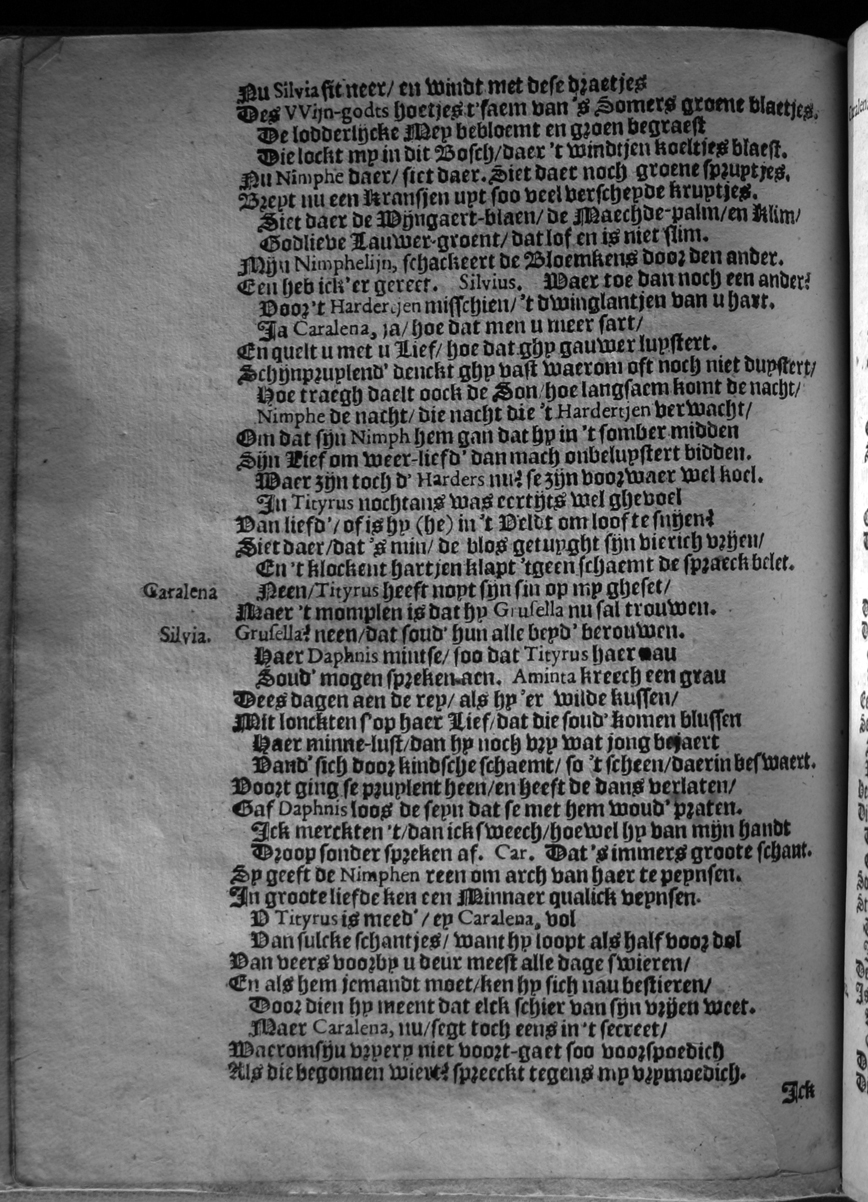 Nu Silvia sit neer/ en windt met dese draetjes
Des VVijn-godts hoetjes t'saem van 's Somers groene blaetjes.
De lodderlijcke Mey bebloemt en groen begraest
Die lockt my in dit Bosch/daer 't windtjen koeltjes blaest.
Nu Nimphe daer/ siet daer. Siet daer noch groene spruytjes.
Breyt nu een Kransjen uyt soo veel verscheyde kruytjes.
Siet daer de Wijngaert-blaen/ de Maechde-palm/en Klim/
Godlieve Lauwer-groent/ dat lof en is niet slim.
Mijn Nimphelijn, schackeert de Bloemkens door den ander.
Een heb ick'er gereet. Silvius. Waer toe dan noch een ander?
Voor't Hardertjen misschien/ 't dwinglantjen van u hart.
Ja Caralena, ja/ hoe dat men u meer sart/
En quelt u met u Lief/ hoe dat ghy gauwer luystert.
Schijnpruylend' denckt ghy vast waerom oft noch niet duystert/
Hoe traegh daelt oock de Son/hoe langsaem komt de nacht/
Nimphe de nacht/ die nacht die 't Hardertjen verwacht/
Om dat sijn Nimph hem gan dat hy in 't somber midden
Sijn Lief om weer-liefd' dan mach onbeluystert bidden.
Waer zijn toch d' Harders nu? se zijn voorwaer wel koel.
In Tityrus nochtans was eertijts wel ghevoel
Van liefd'/ of is hy (he) in 't Veldt om loof te snijen?
Siet daer/dat 's min/ de blos getuyght sijn vierich vrijen/
En 't klockent hartjen klapt 'tgeen schaemt de spraeck belet.
Caralena Neen/Tityrus heeft noyt sijn sin op my gheset/
Maer 't momplen is dat hy Grusella nu sal trouwen.
Silvia. Grusella? neen/dat soud' hun alle beyd' berouwen.
Haer Daphnis mintse/ soo dat Tityrus haer nau
Soud' mogen spreken aen. Aminta kreech een grau
Dees dagen aen de rey/ als hy 'er wilde kussen/
Mit lonckten s'op haer Lief/dat die soud' komen blussen
Haer minne-lust/dan hy noch vry wat jong bejaert
Vand' sich door kindsche schaemt/ so 't scheen/daerin beswaert.
Voort ging se pruylent heen/en heeft de dans verlaten/
Gaf Daphnis loos de seyn dat se met hem woud' praten.
Ick merckten 't/dan ick sweech/hoewel hy van mijn handt
Droop sonder spreken af. Car. Dat 's immers groote schant.
Sy geeft de Nimphen reen om arch van haer te peynsen.
In groote liefde ken een Minnaer qualick veynsen.
V Tityrus is meed'/ ey Caralena, vol
Van sulcke schantjes/ want hy loopt als half voor dol
Van veers voorby u deur meest alle dage swieren/
En als hem jemandt moet/ken hy sich nau bestieren/
Door dien hy meent dat elck schier van sijn vrijen weet.
Maer Caralena, nu/segt toch eens in 't secreet/
Waeromsijn vryery niet voort-gaet soo voorspoedich
Als die begonnen wiert? spreeckt tegens my vrymoedich.
Ick